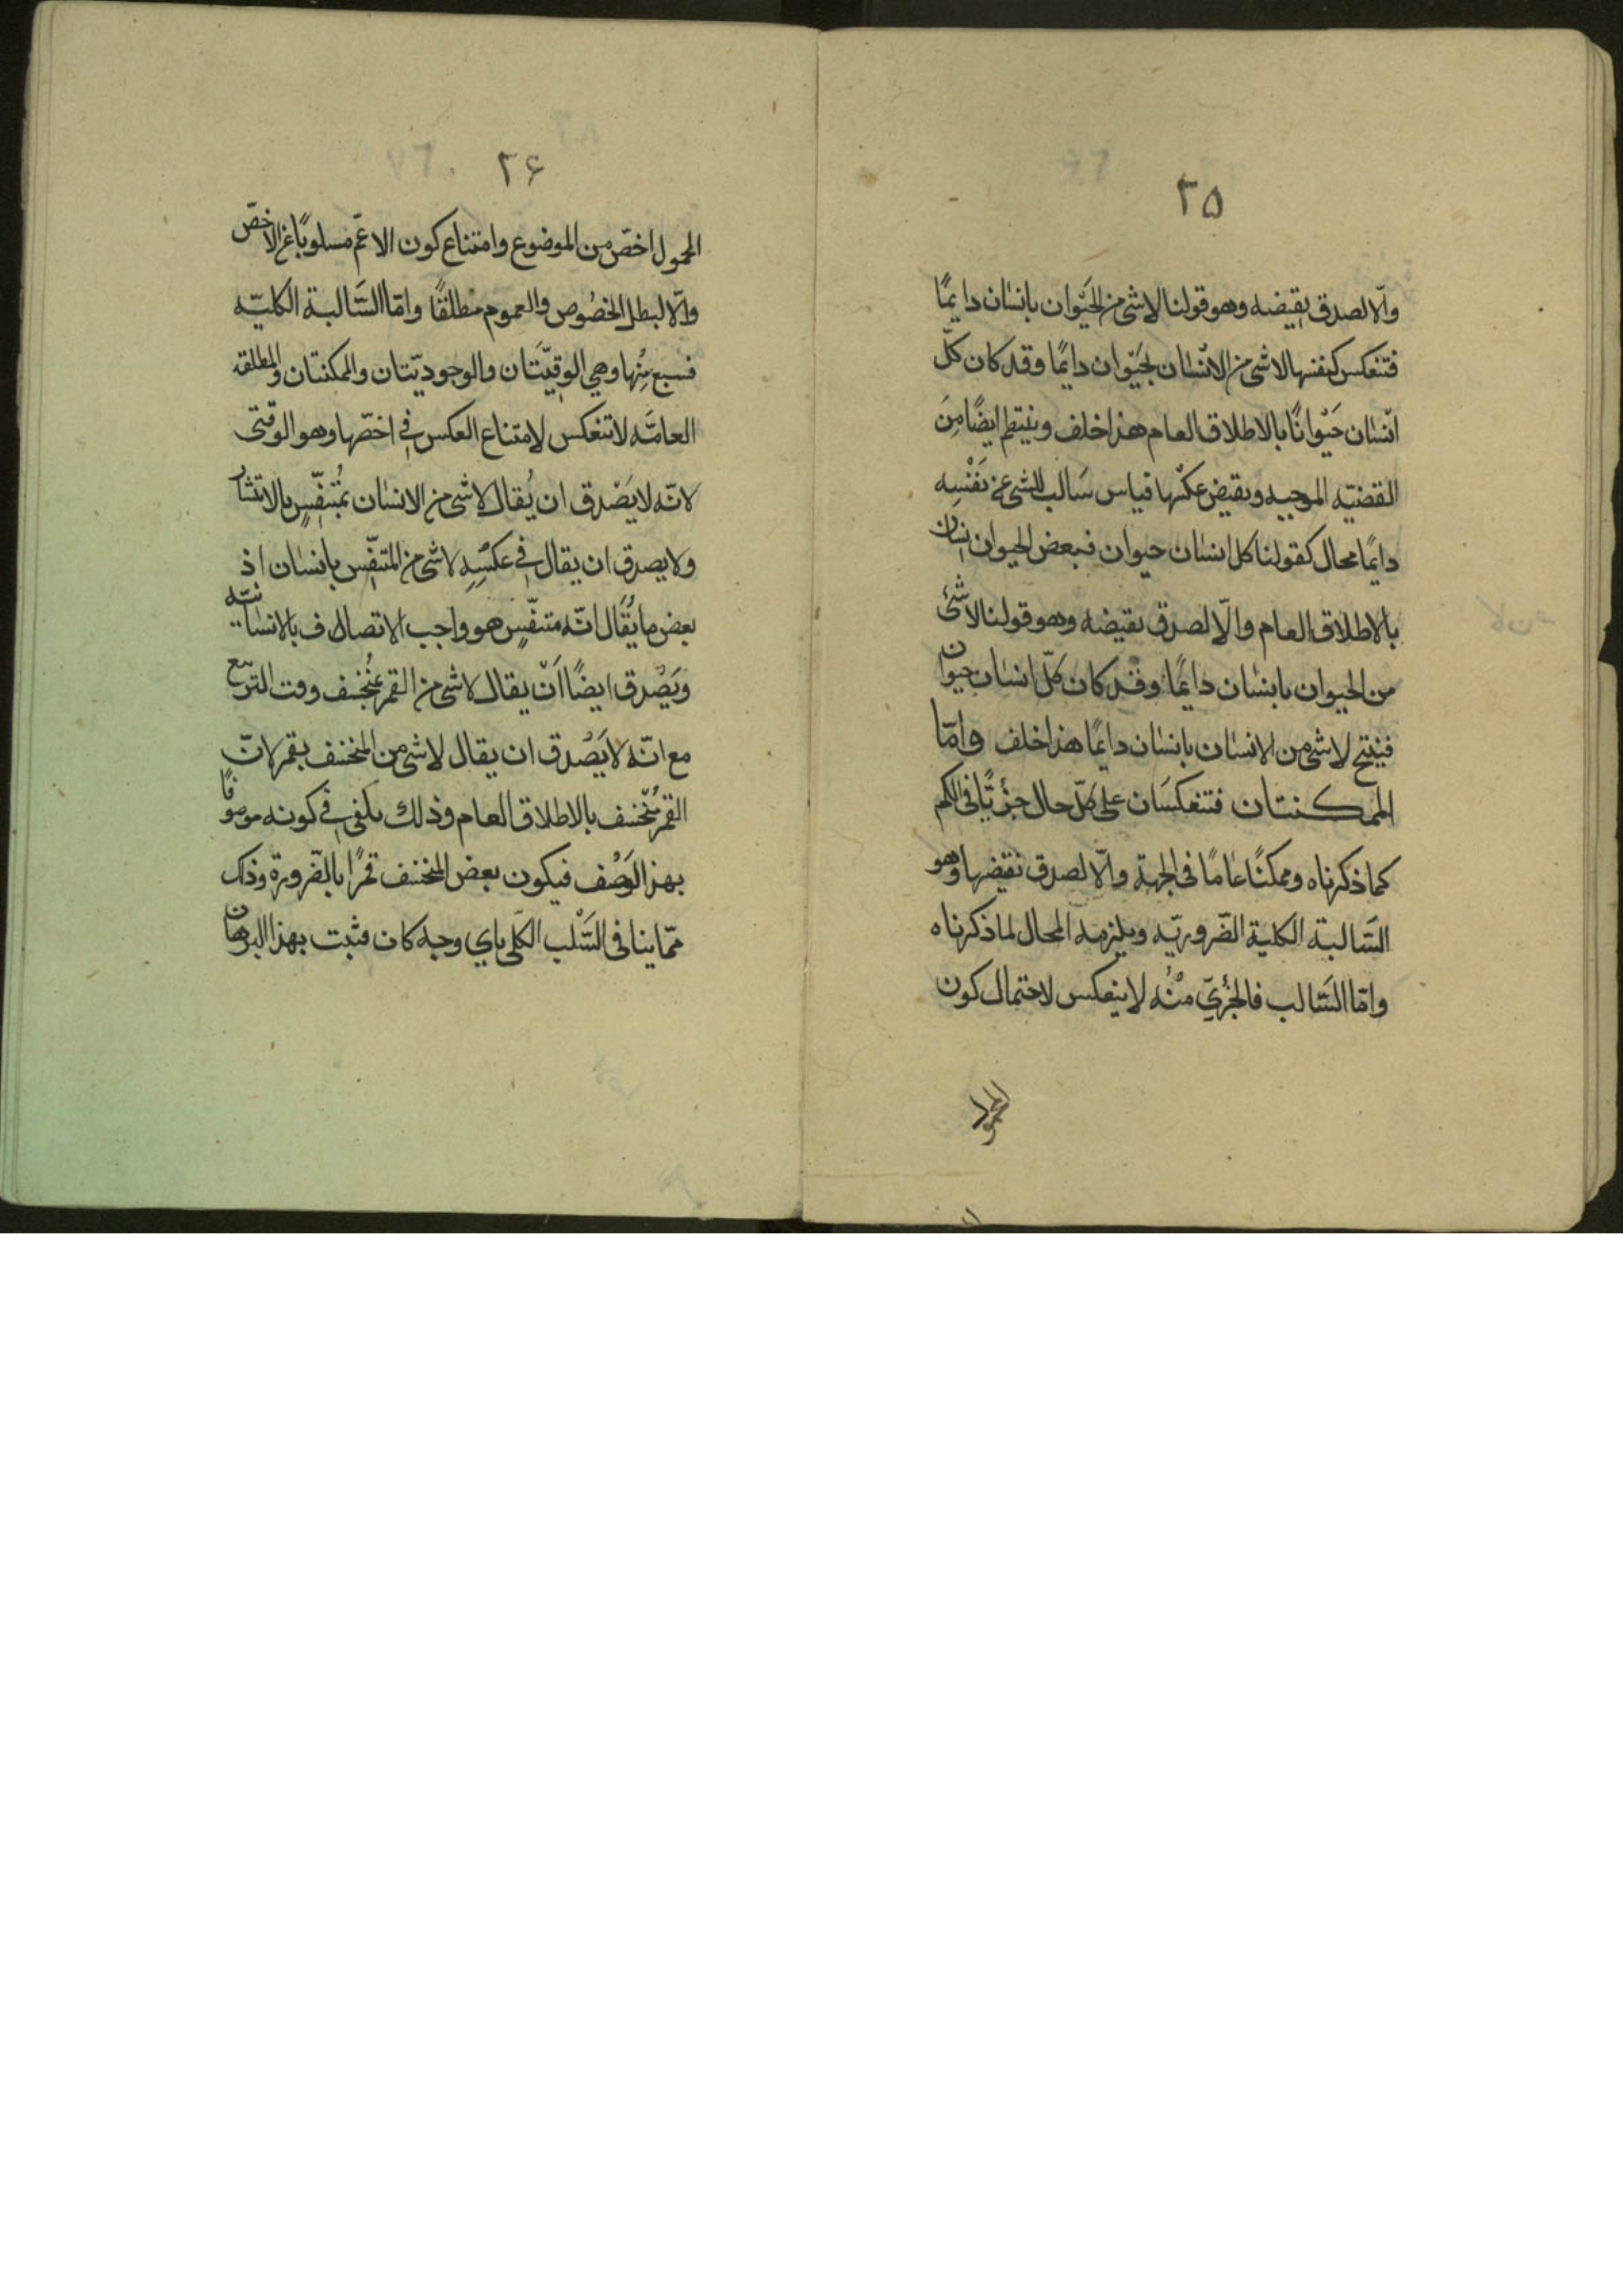 ٢٥
والّا لصدق نقيضه وهو قولنا لا شئ من الحَيْوان بانسٰان دايمًا
فتنعكس كنفسها لا شئ من الانسٰان بحَيْوان دايمًا وقد كان كلّ
انسٰان حَيْوانًا بالاطلاق العام هذا خلف وينتظم ايضًا مِنَ
القضيّه الموجبه ونقيض عكسْها قياس سَالب للشئ عن نَفْسِه
دايمًا محال كقولنا كل انسٰان حيوان فبعض الحيوان انسان
بالاطلاق العام والّا لصدق نقيضه وهو قولنا لا شئ
من الحيوان بانسٰان دايمًا وقد كان كلّ انسٰان حيوان
فينتج لا شئ من الانسٰان بانسٰان دايمًا هذا خلف وامّا
الممكنتان فتنعكسَان على كلّ حال جزئيًّا فى الكم
كما ذكرناه وممكنًا عٰامًا فى الجهة والّا لصدق نقيضها وهو
السَالبة الكلية الضّروريّه ويلزمه المحال لما ذكرناه
وامّا السَالب فالجزئيّ منْهُ لا ينعكس لاحتمال كون
المحمول
٢۶
المحمول اخصّ من الموضوع وامتناع كون الاعمّ مسلوبًا عن الاخصّ
والّا لبطل الخصُوص والعموم مطلقًا وامّا السَالبة الكليّه
فسبع مِنْها وهي الوقتيّتَان والوجوديّتان والممكنتان والمطلقه
العامّه لا تنعكس لامتناع العكس في اخصّها وهو الوقتى
لانّه لا يَصْدق ان يُقال لا شئ من الانسٰان بمُتنفّسٍ بالانتشار
ولا يصدق ان يقال في عكسْهِ لا شئ من المتنفّس بانسٰان اذ
بعض ما يُقال انّه متنفّسٍ هو واجب الاتصاف بالانسٰانيّه
ويَصْدق ايضًا اَنْ يقال لا شئ من القمر بمُنخسف وقت التربيع
مع انّه لا يَصْدق ان يقال لا شئ من المنخسف بقمر لانّ
القمر مُنخسف بالاطلاق العام وذلك يكفي في كونه موصوفًا
بهذا الوَصْف فيكون بعض المنخسف قمرًا بالضّرورة وذلك
ممّا ينافى السَلْب الكلّى باي وجه كان فثبت بهذا البرهان